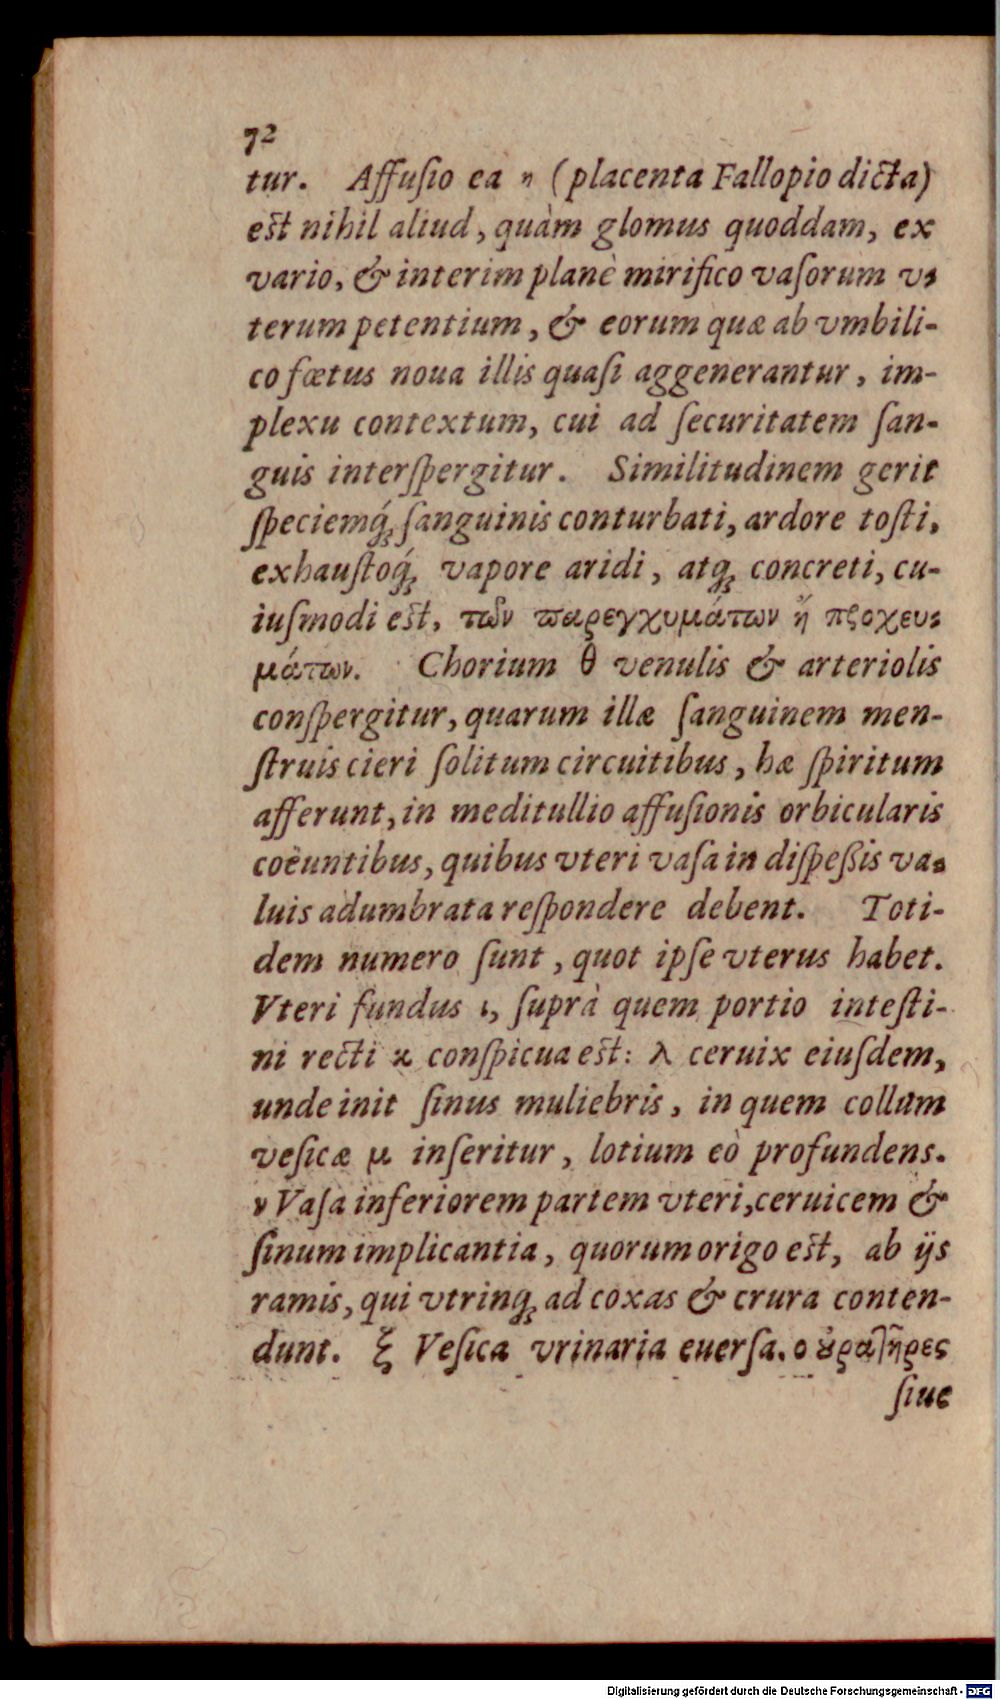 72
tur. Affuſio ea η (placenta Fallopio dicta)
est nihil aliud, quàm glomus quoddam, ex
vario, & interim planè mirifico vaſorum v-
terum petentium, & eorum quæ ab vmbili-
co fœtus noua illis quaſi aggenerantur, im-
plexu contextum, cui ad ſecuritatem ſan-
guis interſpergitur. Similitudinem gerit
ſpeciemq́ꝫ ſanguinis conturbati, ardore toſti,
exhauſtoq́ꝫ vapore aridi, atqꝫ concreti, cu-
iuſmodi est, τῶν παρεγχυμάτων ἢ προχευ-
μάτων. Chorium θ venulis & arteriolis
conſpergitur, quarum illæ ſanguinem men-
ſtruis cieri ſolitum circuitibus, hæ ſpiritum
afferunt, in meditullio affuſionis orbicularis
coëuntibus, quibus vteri vaſa in diſpeßis va-
luis adumbrata reſpondere debent. Toti-
dem numero ſunt, quot ipſe vterus habet.
Vteri fundus ι, ſuprà quem portio inteſti-
ni recti ϰ conſpicua est: λ ceruix eiuſdem,
unde init ſinus muliebris, in quem collum
veſicæ μ inſeritur, lotium eò profundens.
ν Vaſa inferiorem partem vteri, ceruicem &
ſinum implicantia, quorum origo est, ab ijs
ramis, qui vtrinqꝫ ad coxas & crura conten-
dunt. ξ Veſica vrinaria euerſa. ο ȣ̓ρατῆρες
ſiue
Digitalisierung gefördert durch die Deutsche Forschungsgemeinschaft - DFG